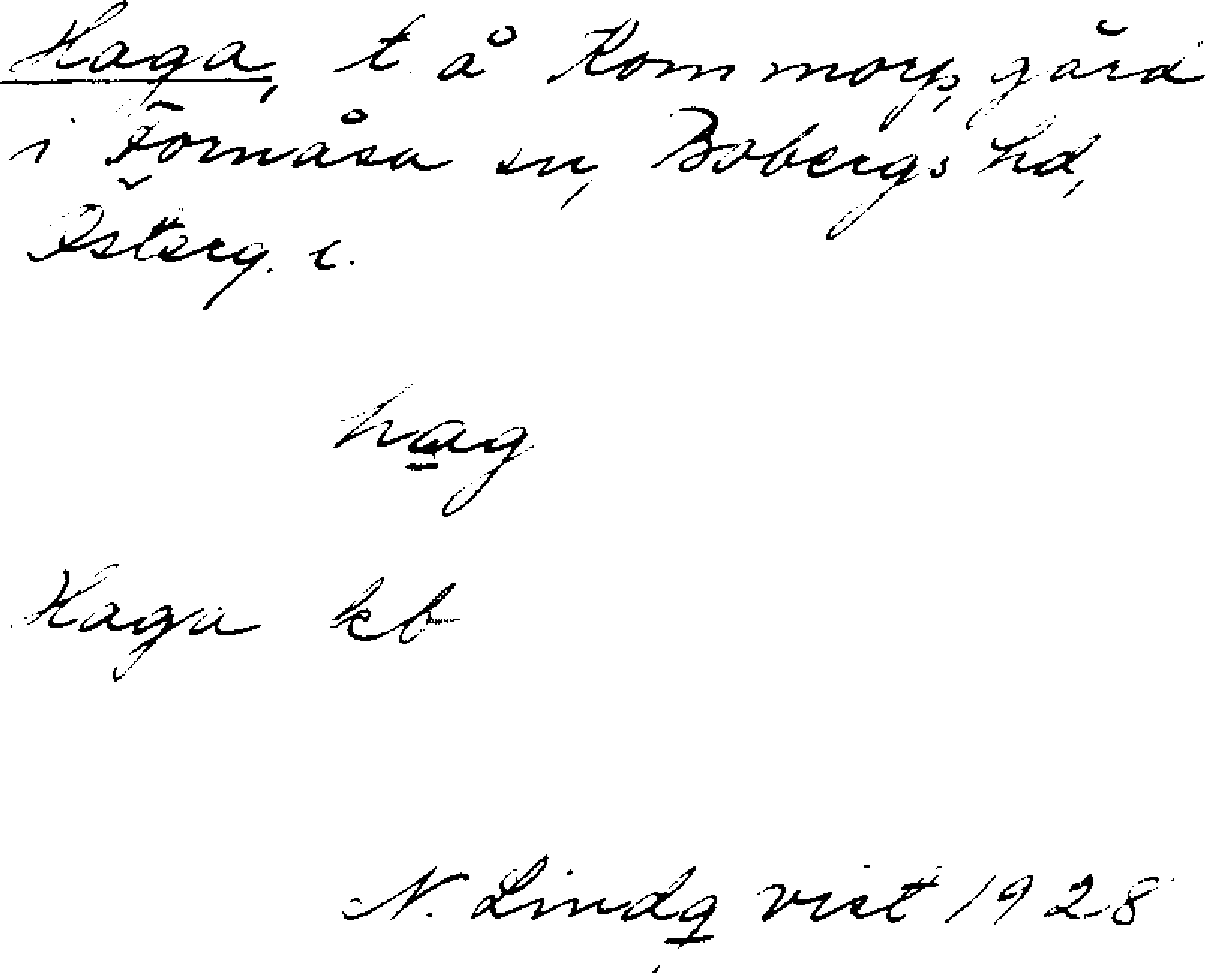 Haga, t å Kommorp, gård
i Fornåsa sn, Bobergs hd,
Österg. l.
hag
Haga kb
N. Lindqvist 1928